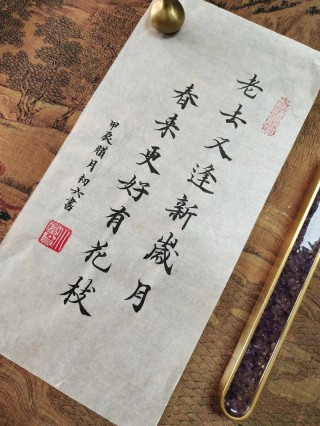 老去又逢新歲月
春来更好有花枝
甲辰腊月初六書